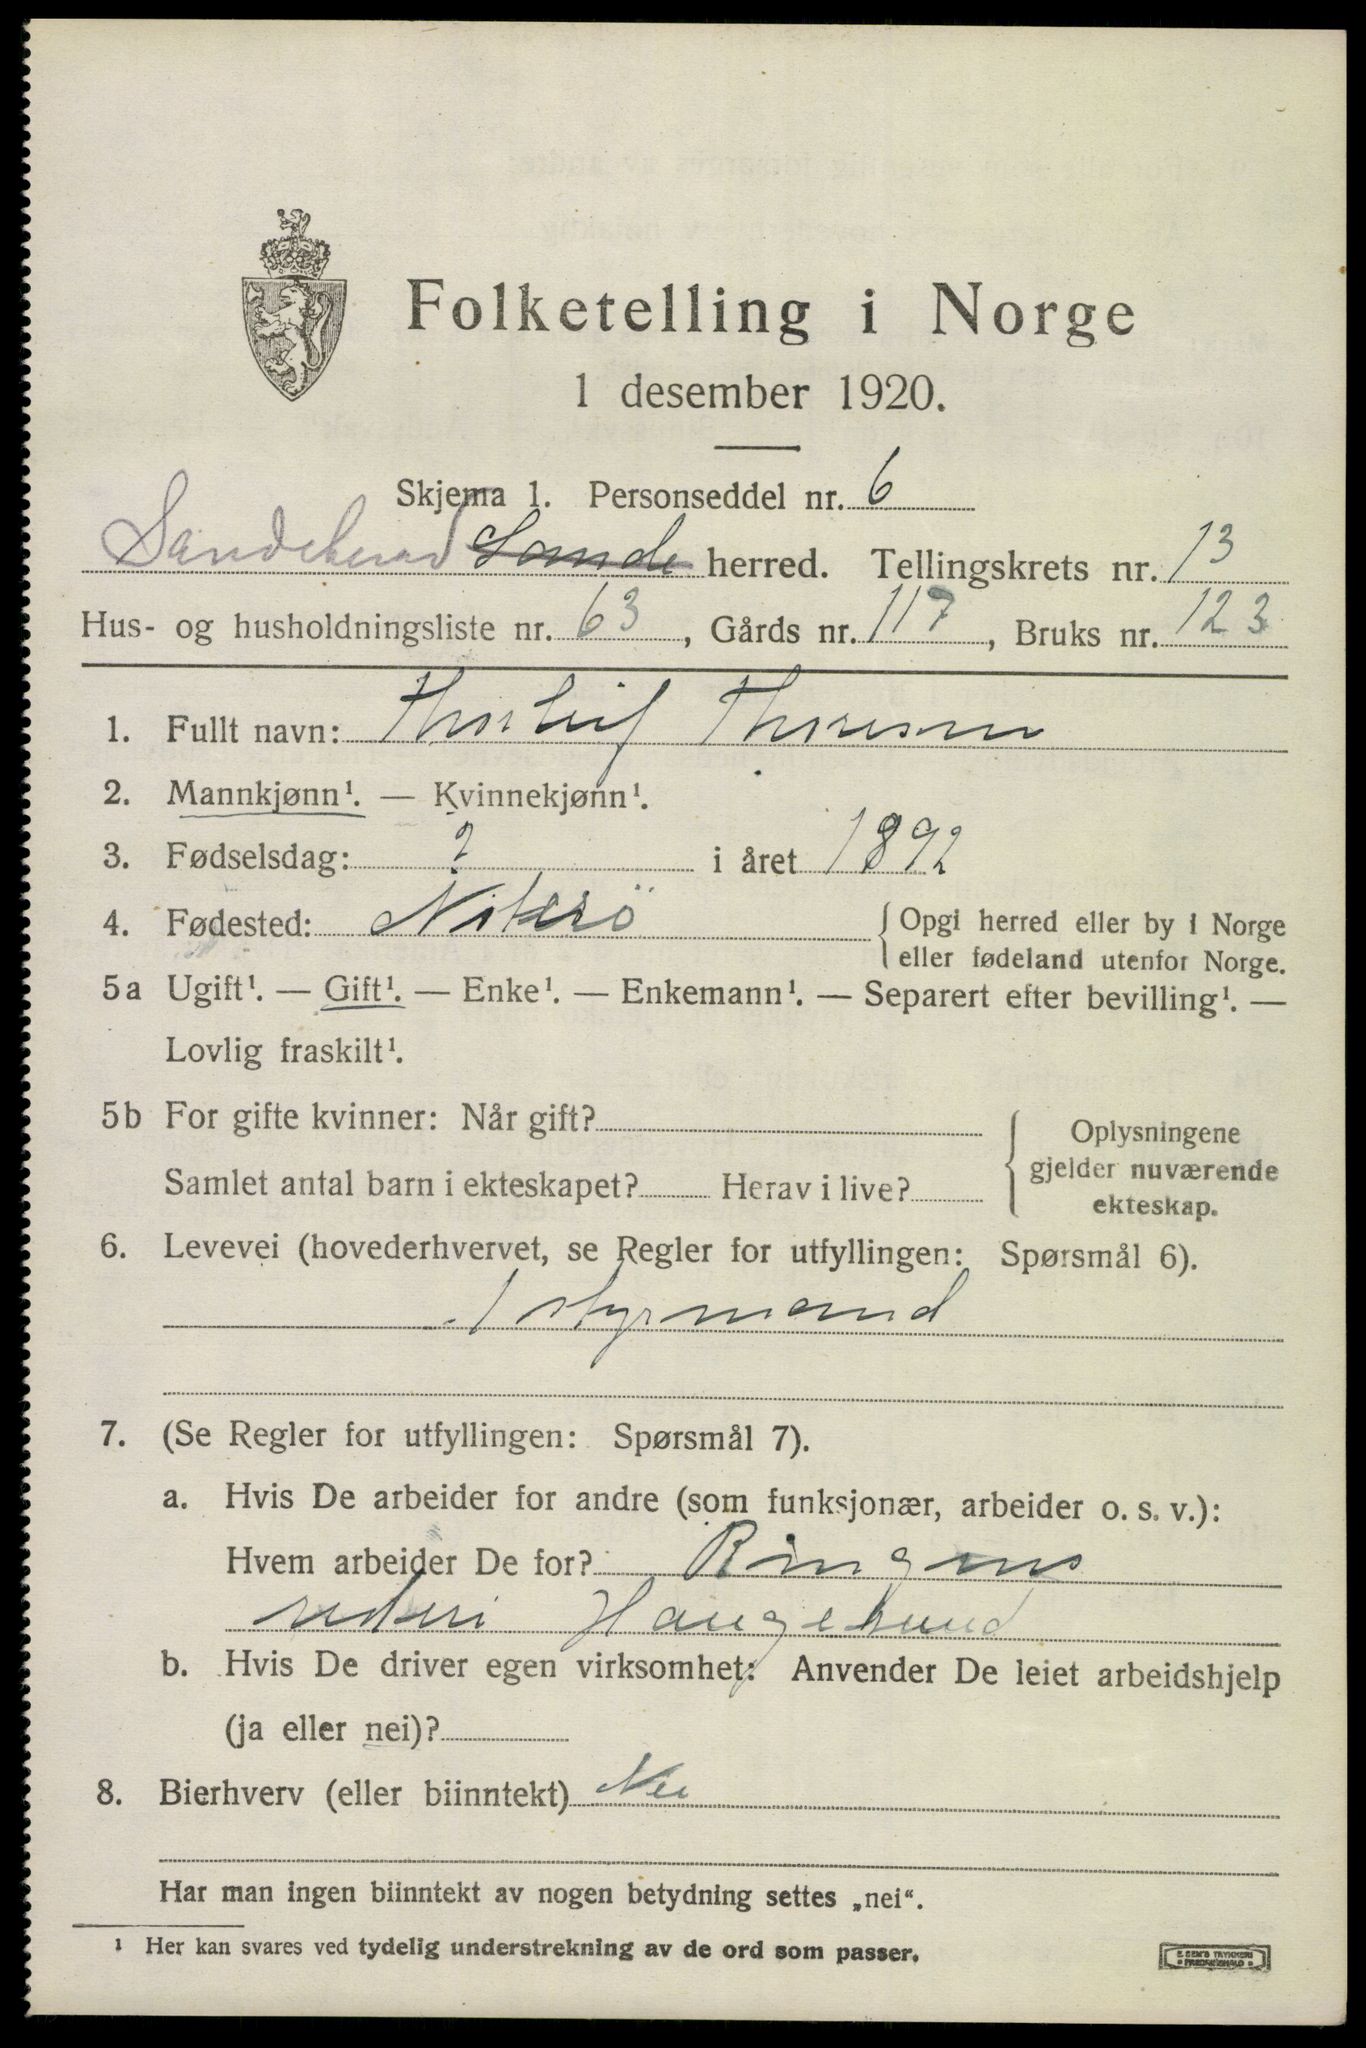 Folketelling i Norge
1 desember 1920.
Skjema 1. Personseddel nr. 6
Sandeherad Sande herred. Tellingskrets nr. 13
Hus- og husholdningsliste nr. 63, Gårds nr. 117, Bruks nr. 123
1. Fullt navn: Thorleif Thoresen
2. Mannkjønn¹. — Kvinnekjønn¹.
3. Fødselsdag: ? i året 1892
4. Fødested: Nøtterö { Opgi herred eller by i Norge
eller fødeland utenfor Norge.
5a Ugift¹. — Gift¹. — Enke¹. — Enkemann¹. — Separert efter bevilling¹. —
Lovlig fraskilt¹.
5b For gifte kvinner: Når gift?
Samlet antal barn i ekteskapet? Herav i live?
{ Oplysningene
gjelder nuværende
ekteskap.
6. Levevei (hovederhvervet, se Regler for utfyllingen: Spørsmål 6).
1 styrmand
7. (Se Regler for utfyllingen: Spørsmål 7).
a. Hvis De arbeider for andre (som funksjonær, arbeider o. s. v.):
Hvem arbeider De for?
rederi Haugesund
b. Hvis De driver egen virksomhet: Anvender De leiet arbeidshjelp
(ja eller nei)?
8. Bierhverv (eller biinntekt) Nei
Har man ingen biinntekt av nogen betydning settes „nei“.
¹ Her kan svares ved tydelig understrekning av de ord som passer.
E. SEM'S TRYKKERI
FREDRIKSHALD